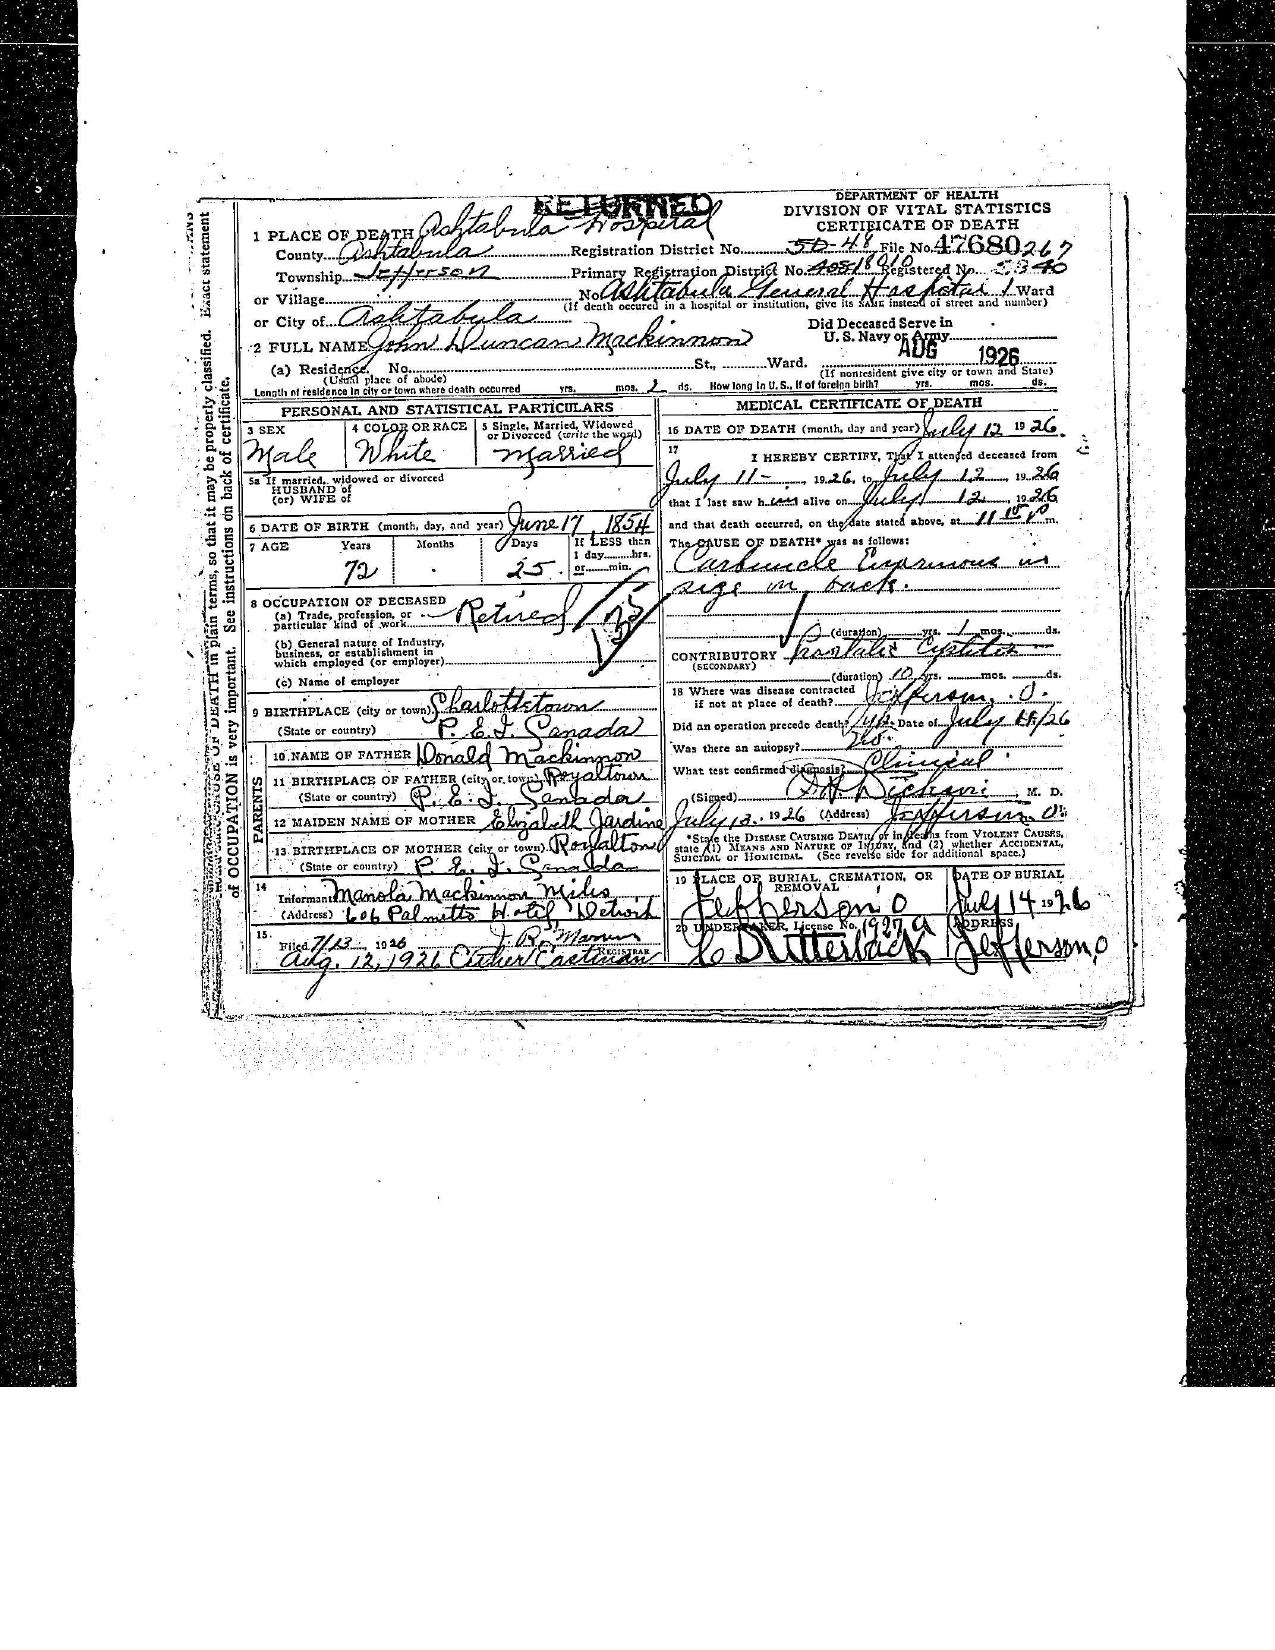 RETURNED
DEPARTMENT OF HEALTH
DIVISION OF VITAL STATISTICS
CERTIFICATE OF DEATH
1 PLACE OF DEATH Ashtabula Hospital
County Ashtabula Registration District No. 50-48 File No. 47680 267
Township Jefferson Primary Registration District No. Registered No.
or Village No. Ashtabula General Hospital Ward
(If death occured in a hospital or institution, give its NAME instead of street and number)
or City of Ashtabula
Did Deceased Serve in
U. S. Navy or Army
2 FULL NAME John Duncan Mackinnon
AUG 1926
(a) Residence, No. St., Ward.
(Usual place of abode) (If nonresident give city or town and State)
Length of residence in city or town where death occurred yrs. mos. 2 ds. How long in U. S., if of foreign birth? yrs. mos. ds.
PERSONAL AND STATISTICAL PARTICULARS
3 SEX 4 COLOR OR RACE 5 Single, Married, Widowed
or Divorced (write the word)
Male White Married
5a If married, widowed or divorced
HUSBAND of
(or) WIFE of
6 DATE OF BIRTH (month, day, and year) June 17, 1854
7 AGE Years Months Days If LESS than
1 day hrs.
72 25 or min.
8 OCCUPATION OF DECEASED
(a) Trade, profession, or
particular kind of work Retired
(b) General nature of Industry,
business, or establishment in
which employed (or employer)
(c) Name of employer
9 BIRTHPLACE (city or town) Charlottetown
(State or country) P. E. I. Canada
PARENTS
10 NAME OF FATHER Donald Mackinnon
11 BIRTHPLACE OF FATHER (city or town) Royaltown
(State or country) P. E. I. Canada
12 MAIDEN NAME OF MOTHER Elizabeth Jardine
13 BIRTHPLACE OF MOTHER (city or town) Royalton
(State or country) P. E. I. Canada
14
Informant Manola Mackinnon Miles
(Address) 606 Palmetto Hotel, Detroit
15
Filed 7/13, 1926
REGISTRAR
Aug. 12, 1926 Esther Eastman
MEDICAL CERTIFICATE OF DEATH
16 DATE OF DEATH (month, day and year) July 12 1926.
17 I HEREBY CERTIFY, That I attended deceased from
July 11 -, 1926, to July 12, 1926
that I last saw him alive on July 12, 1926
and that death occurred, on the date stated above, at 11 m.
The CAUSE OF DEATH* was as follows:
Carbuncle Enormous in
size on back.
(duration) yrs. 1 mos. ds.
CONTRIBUTORY Prostatic Cystitis
(SECONDARY)
(duration) 10 yrs. mos. ds.
18 Where was disease contracted
if not at place of death? Jefferson, O.
Did an operation precede death? Yes Date of July 11/26
Was there an autopsy? No.
What test confirmed diagnosis? Clinical
(Signed) M. D.
July 13, 1926 (Address) Jefferson, O.
*State the DISEASE CAUSING DEATH, or in deaths from VIOLENT CAUSES,
state (1) MEANS AND NATURE OF INJURY, and (2) whether ACCIDENTAL,
SUICIDAL or HOMICIDAL. (See reverse side for additional space.)
19 PLACE OF BURIAL, CREMATION, OR
REMOVAL
DATE OF BURIAL
Jefferson O July 14 1926
20 UNDERTAKER, License No. 1927 A
ADDRESS
Jefferson, O
so that it may be properly classified. Exact statement
OF DEATH in plain terms,
of OCCUPATION is very important. See instructions on back of certificate.